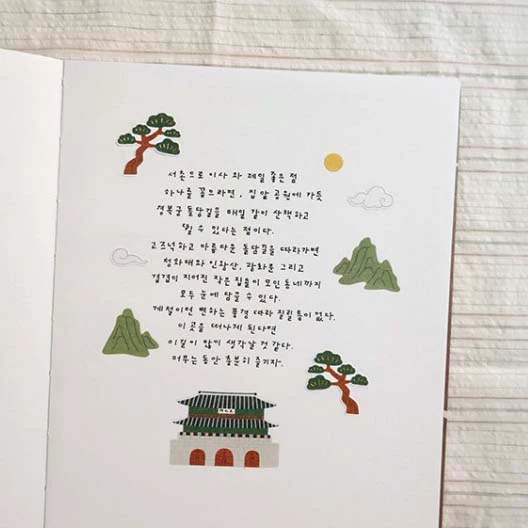 서촌으로 이사 와 제일 좋은 점
하나를 꼽으라면, 집 앞 공원에 가듯
경복궁 돌담길을 매일 같이 산책하고
뛸 수 있다는 점이다.
고즈넉하고 아름다운 돌담길을 따라가면
청와대와 인왕산, 광화문 그리고
겹겹이 지어진 작은 집들이 모인 동네까지
모두 눈에 담을 수 있다.
계절마다 변하는 풍경 따라 질릴 틈이 없다.
이 곳을 떠나게 된다면
이 길이 많이 생각날 것 같다.
머무는 동안 충분히 즐기자.